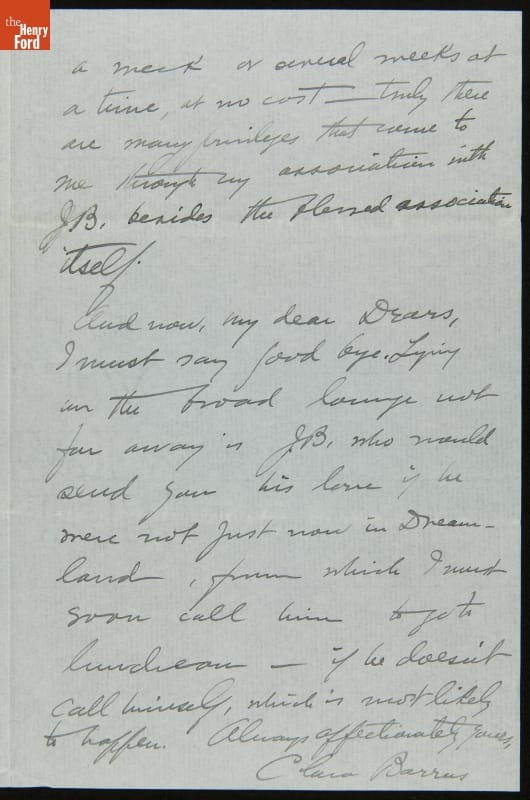 the
Henry
Ford
a week or several weeks at
a time, at no cost — truly there
are many privileges that come to
me through my association with
JB, besides the blessed association
itself.
And now, my dear Dears,
I must say good bye. Lying
on the broad lounge not
far away is JB, who would
send you his love if he
were not just now in Dream-
land, from which I must
soon call him to go to
luncheon — if he doesn't
call himself, which is most likely
to happen. Always affectionately yours,
Clara Barrus